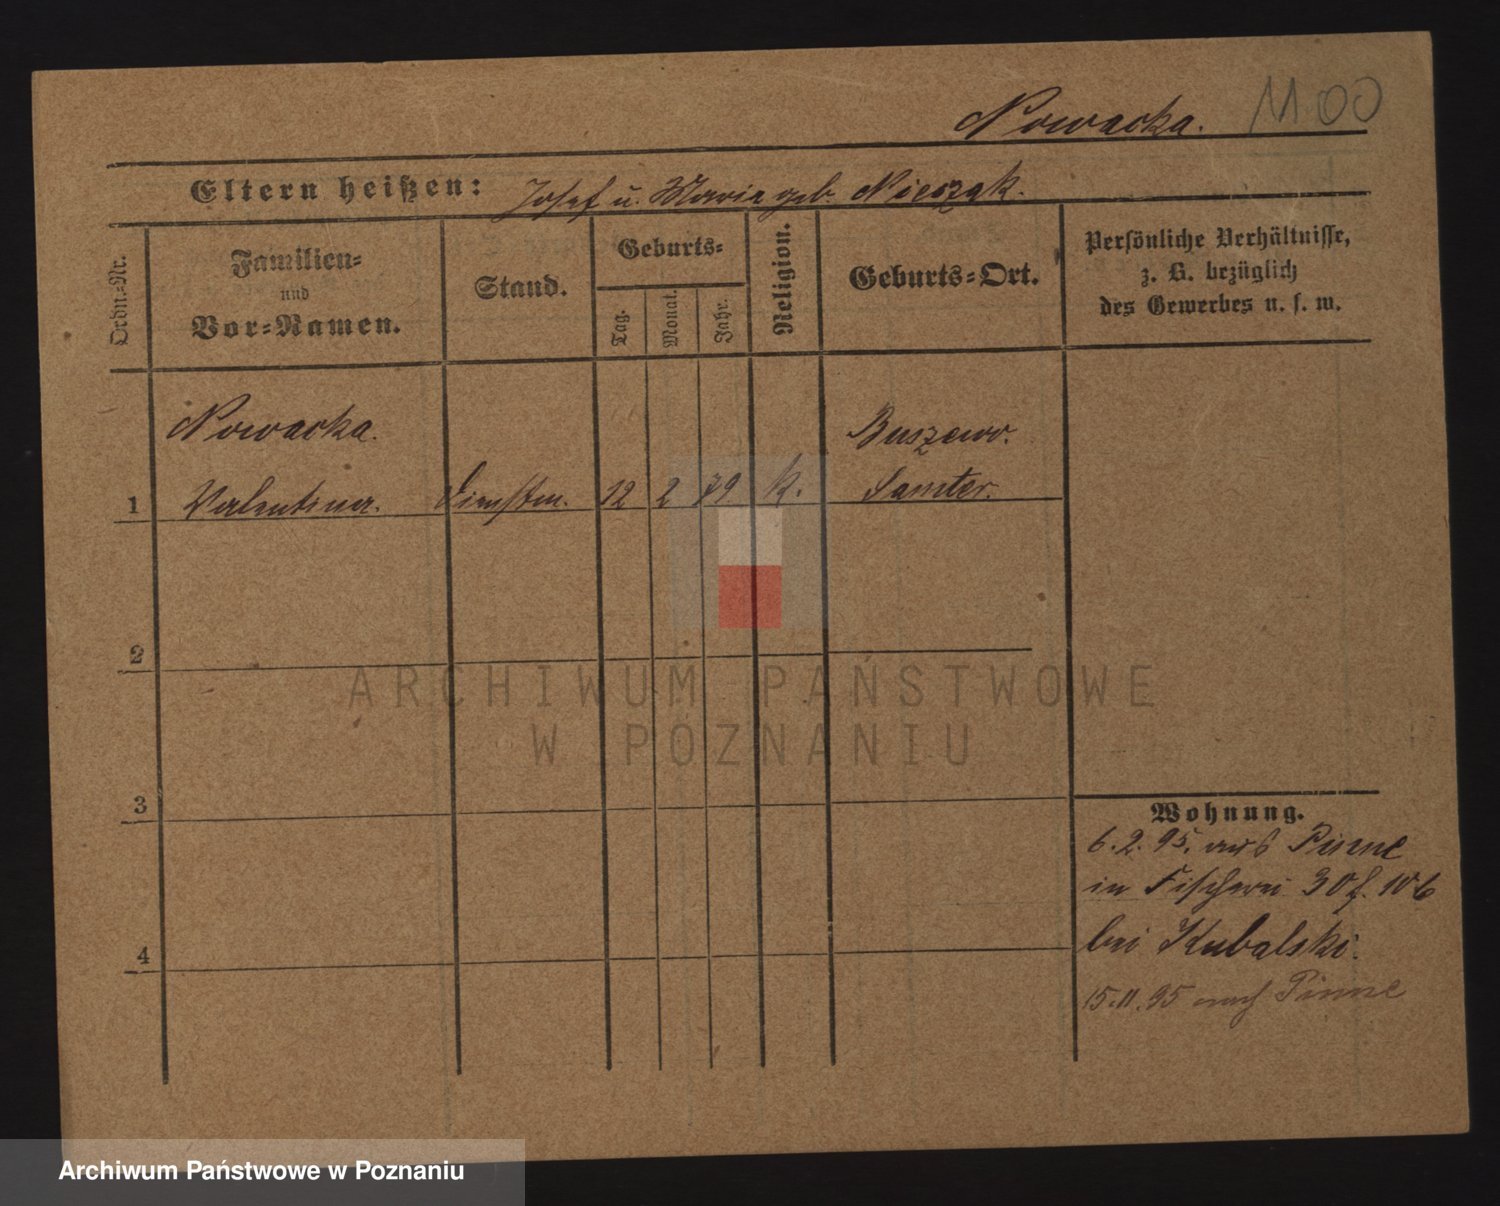 Nowacka. 1100
Eltern heißen: Josef u. Marie geb. Nieszak.
Ordn.-Nr.
Familien-
und
Vor-Namen.
Stand.
Geburts-
Tag.
Monat.
Jahr.
Religion.
Geburts-Ort.
Persönliche Verhältnisse,
z. B. bezüglich
des Gewerbes u. s. w.
Nowacka. Buszewo.
1 Valentina. Dienstm. 12 2 79 k. Samter.
2
ARCHIWUM PAŃSTWOWE
W POZNANIU
3
Wohnung.
6.2.95. aus Pinne
in Fischerei 30 f. 106
bei Kubalski.
4
15.11.95 nach Pinne
Archiwum Państwowe w Poznaniu